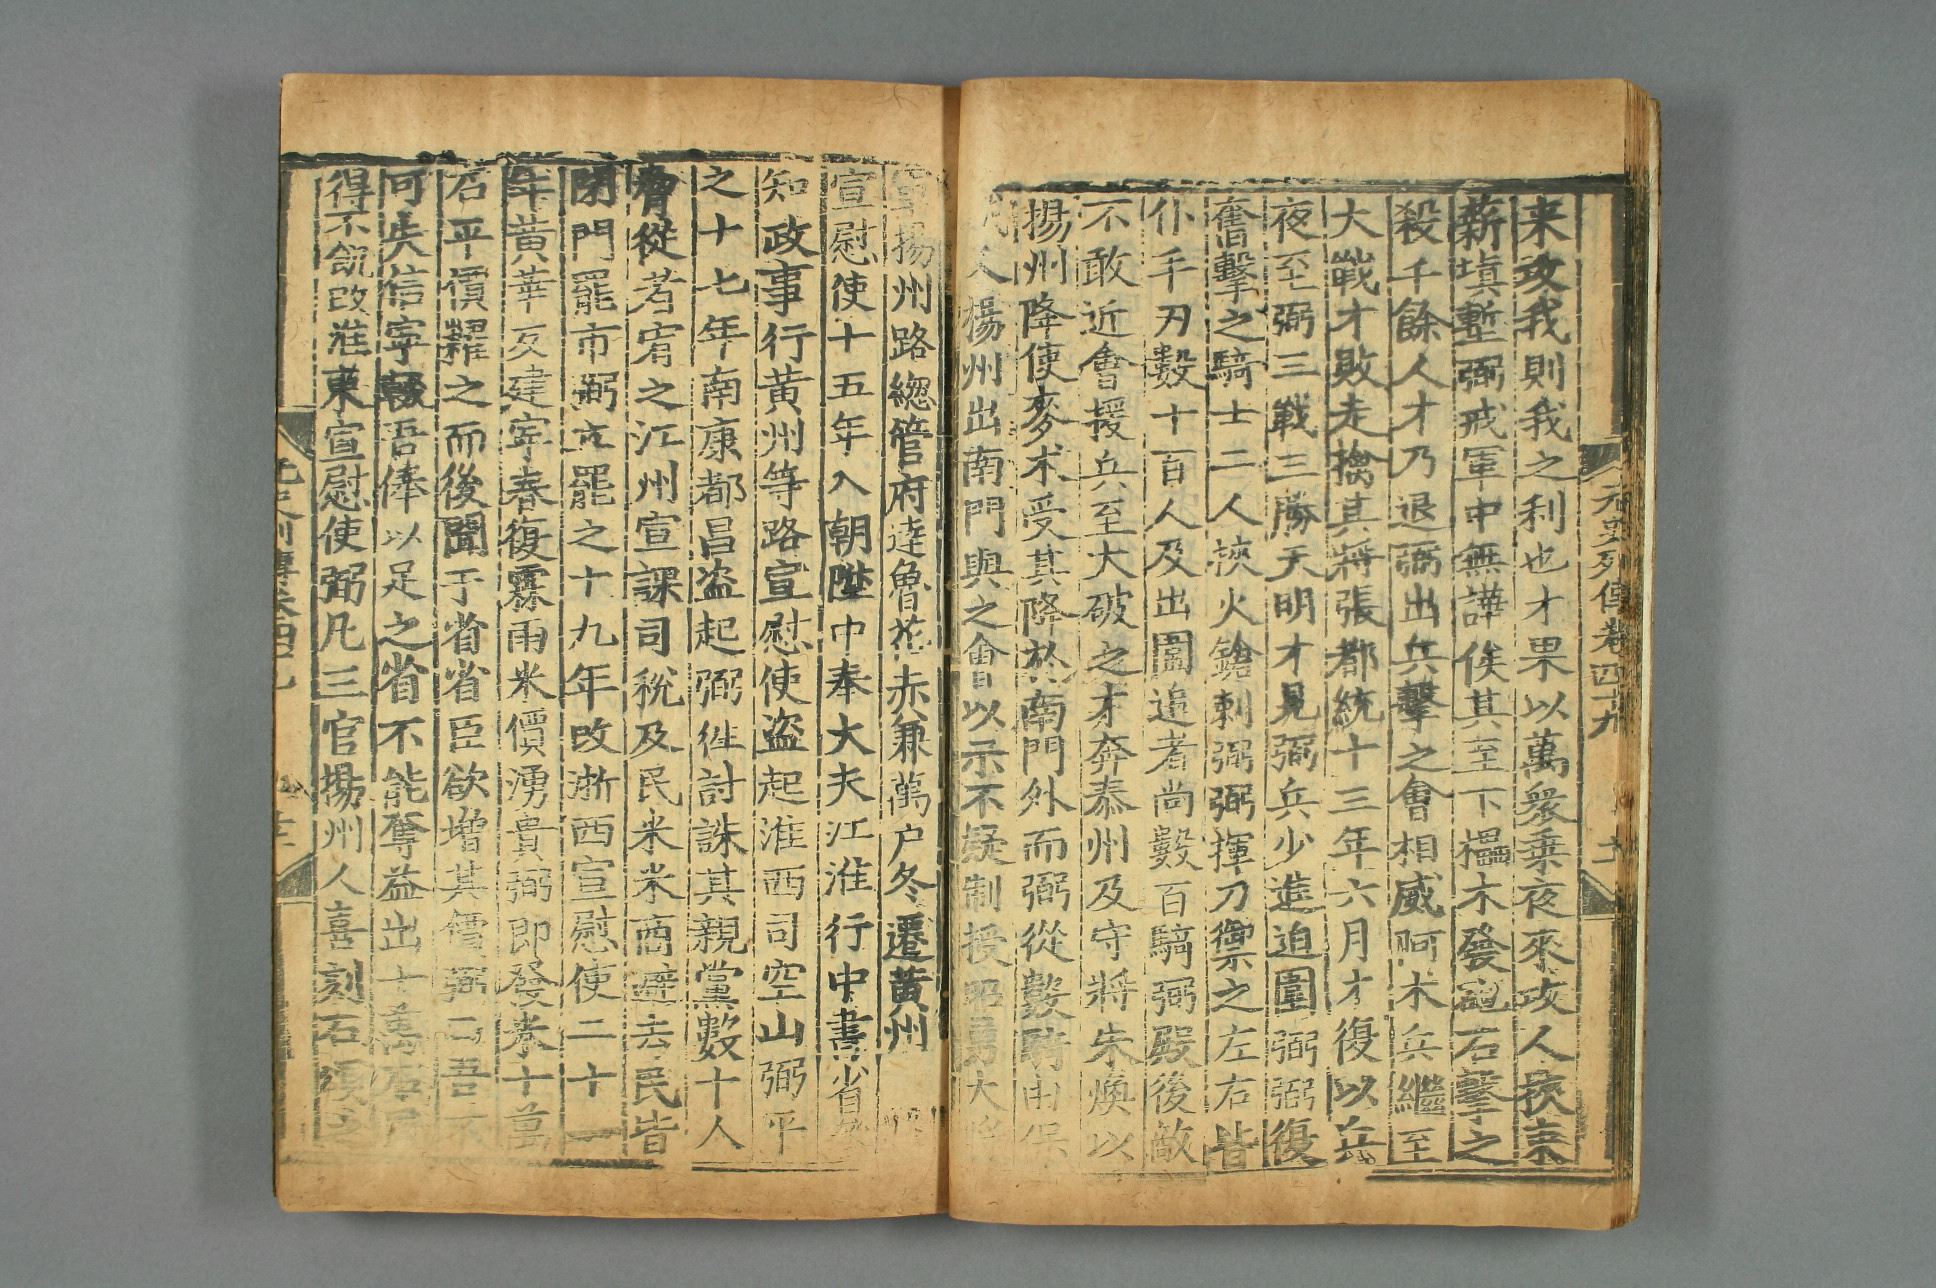 元史列傳卷四十九
来攻我則我之利也才果以萬衆乗夜來攻人挾束
薪填塹弼戒軍中無譁俟其至下櫑木發砲石擊之
殺千餘人才乃退弼出兵擊之會相威阿术兵繼至
大戰才敗走擒其將張都統十三年六月才復以兵
夜至弼三戰三勝天明才見弼兵少進迫圍弼弼復
奮擊之騎士二人挾火鎗刺弼弼揮刀禦之左右皆
仆手刃數十百人及出圍追者尚數百騎弼殿後敵
不敢近會援兵至大破之才奔泰州及守將朱煥以
揚州降使麥术受其降於南門外而弼從數騎由保
人揚州出南門與之會以示不疑制授昭勇大
軍揚州路總管府達魯花赤兼萬户冬遷黄州
宣慰使十五年入朝陞中奉大夫江淮行中書省
知政事行黄州等路宣慰使盗起淮西司空山弼平
之十七年南康都昌盗起弼徃討誅其親黨數十人
脅從者宥之江州宣課司税及民米米商避去民皆
閉門罷市弼立罷之十九年改浙西宣慰使二十一
年黄華反建寧春復霖雨米價湧貴弼即發米十萬
石平價糶之而後聞于省省臣欲增其價弼曰吾不
可失信寧輟吾俸以足之省不能奪益出十萬石民
得不飢改淮東宣慰使弼凡三官揚州人喜刻石頌之